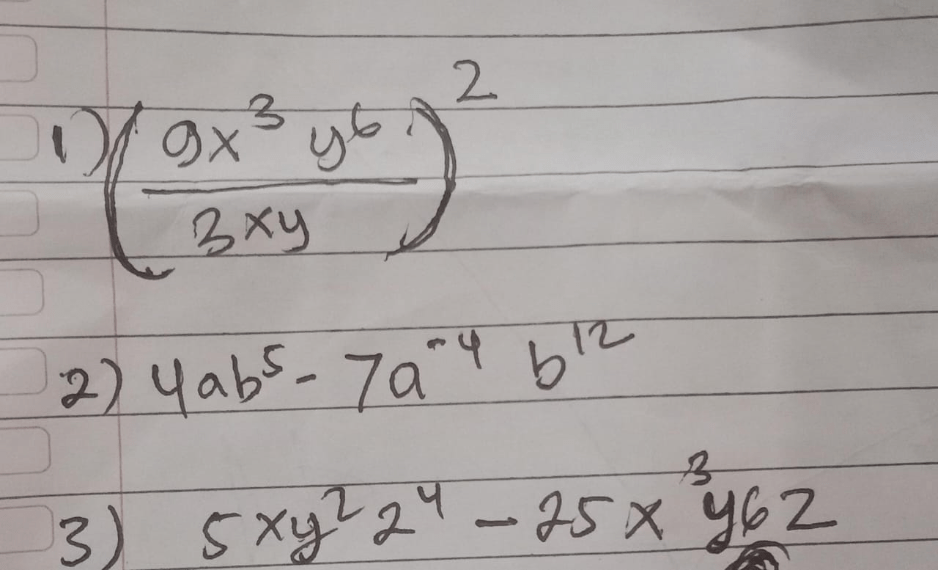 1) (9x³ y⁶ / 3xy)²
2) 4ab⁵ - 7a⁻⁴ b¹²
3) 5xy² 2⁴ - 25x³y6z